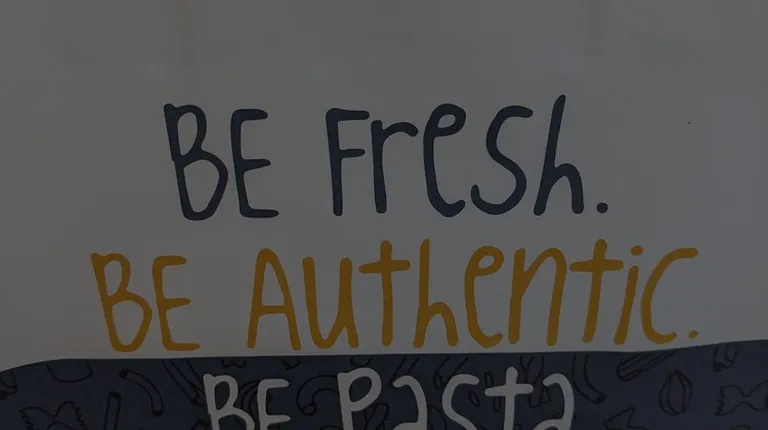 BE Fresh.
BE Authentic.
BE Pasta